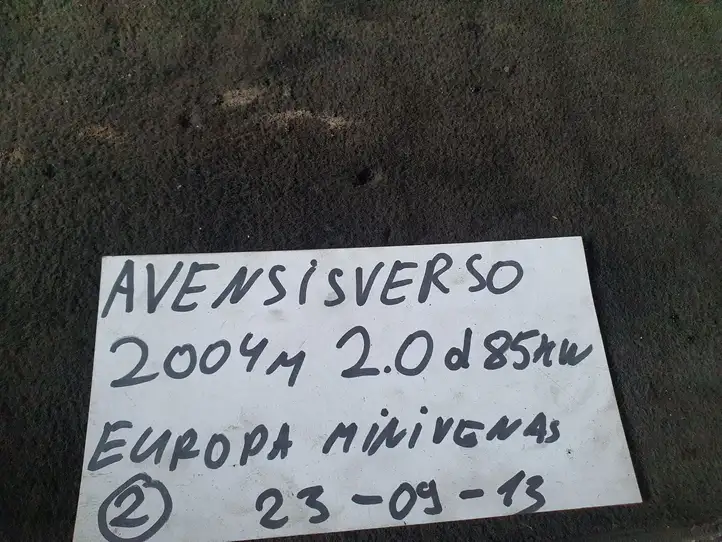 AVENSiSVERSO
2004M 2.0 d 85KW
EUROPA MiNiVENAS
2 23-09-13